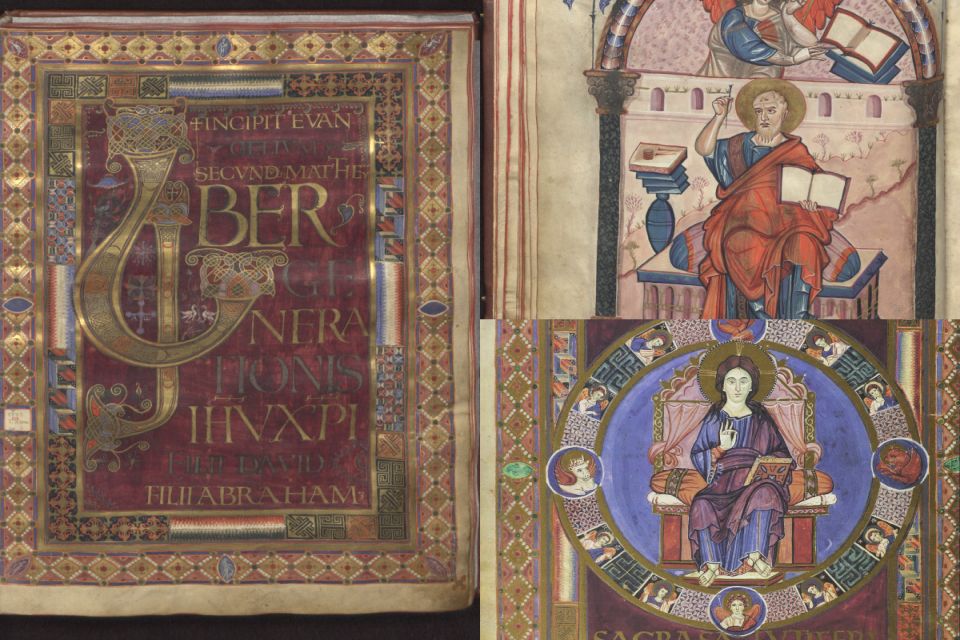 +INCIPIT EVAN
GELIUM
SECVND MATHE
LIBER
GE
NERA
TIONIS
IHV XPI
FILII DAVID
FILII ABRAHAM